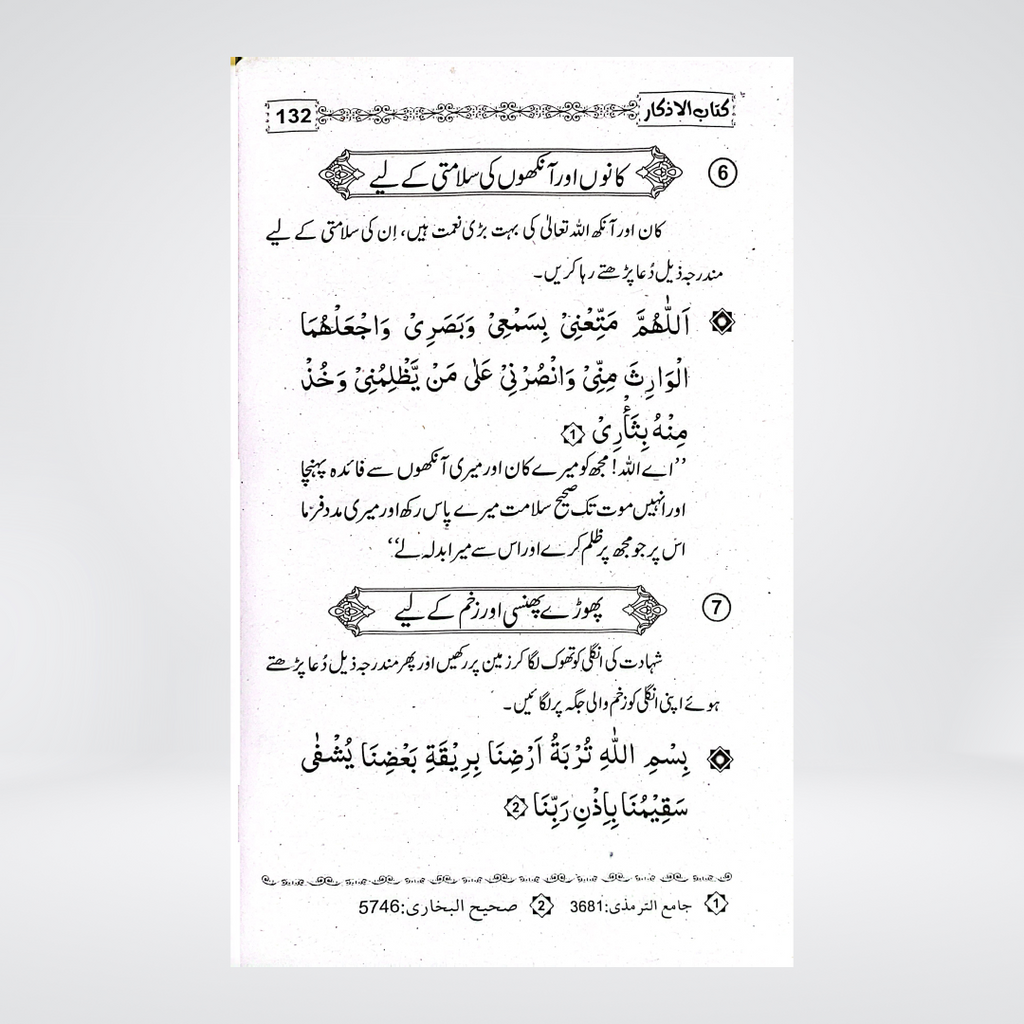 کتاب الاذکار 132
6 کانوں اور آنکھوں کی سلامتی کے لیے
کان اور آنکھ اللہ تعالیٰ کی بہت بڑی نعمت ہیں، اِن کی سلامتی کے لیے
مندرجہ ذیل دُعا پڑھتے رہا کریں۔
اَللّٰهُمَّ مَتِّعْنِيْ بِسَمْعِيْ وَبَصَرِيْ وَاجْعَلْهُمَا
الْوَارِثَ مِنِّيْ وَانْصُرْنِيْ عَلٰى مَنْ يَّظْلِمُنِيْ وَخُذْ
مِنْهُ بِثَأْرِيْ 1
”اے اللہ! مجھ کو میرے کان اور میری آنکھوں سے فائدہ پہنچا
اور انہیں موت تک صحیح سلامت میرے پاس رکھ اور میری مدد فرما
اس پر جو مجھ پر ظلم کرے اور اس سے میرا بدلہ لے“
7 پھوڑے پھنسی اور زخم کے لیے
شہادت کی انگلی کو تھوک لگا کر زمین پر رکھیں اور پھر مندرجہ ذیل دُعا پڑھتے
ہوئے اپنی انگلی کو زخم والی جگہ پر لگائیں۔
بِسْمِ اللّٰهِ تُرْبَةُ اَرْضِنَا بِرِيْقَةِ بَعْضِنَا يُشْفٰى
سَقِيْمُنَا بِاِذْنِ رَبِّنَا 2
1 جامع الترمذی:3681 2 صحیح البخاری:5746